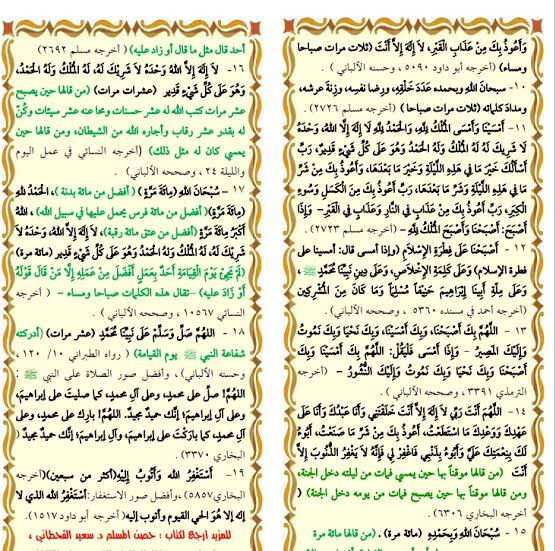 وَأَعُوذُ بِكَ مِنْ عَذَابِ القَبْرِ، لَا إِلَهَ إِلَّا أَنْتَ (ثلاث مرات صباحا
ومساء) (أخرجه أبو داود ٥٠٩٠ ، وحسنه الألباني) .
١٠- سبحان اللهِ وبحمدهِ عَدَدَ خَلْقِهِ، ورِضا نفسِه، وزِنةَ عرشه،
ومدادَ كلماتِه (ثلاث مرات صباحا) (أخرجه مسلم ٢٧٢٦) .
١١- أَمْسَيْنَا وَأَمْسَى المُلْكُ لِلَّهِ، وَالحَمْدُ لِلَّهِ لَا إِلَهَ إِلَّا اللهُ، وَحْدَهُ
لَا شَرِيكَ لَهُ لَهُ المُلْكُ وَلَهُ الحَمْدُ وَهُوَ عَلَى كُلِّ شَيْءٍ قَدِيرٌ، رَبِّ
أَسْأَلُكَ خَيْرَ مَا فِي هَذِهِ اللَّيْلَةِ وَخَيْرَ مَا بَعْدَهَا، وَأَعُوذُ بِكَ مِنْ شَرِّ
مَا فِي هَذِهِ اللَّيْلَةِ وَشَرِّ مَا بَعْدَهَا، رَبِّ أَعُوذُ بِكَ مِنَ الكَسَلِ وَسُوءِ
الكِبَرِ، رَبِّ أَعُوذُ بِكَ مِنْ عَذَابٍ فِي النَّارِ وَعَذَابٍ فِي القَبْرِ- وَإِذَا
أَصْبَحَ: أَصْبَحْنَا وَأَصْبَحَ المُلْكُ لِلَّهِ - (أخرجه مسلم ٢٧٢٣) .
١٢ - أَصْبَحْنَا عَلَى فِطْرَةِ الإِسْلَامِ (وإذا أمسى قال: أمسينا على
فطرة الإسلام) وَعَلَى كَلِمَةِ الإِخْلَاصِ، وَعَلَى دِينِ نَبِيِّنَا مُحَمَّدٍ ﷺ ،
وَعَلَى مِلَّةِ أَبِينَا إِبْرَاهِيمَ حَنِيفًا مُسْلِمًا وَمَا كَانَ مِنَ المُشْرِكِينَ
(أخرجه أحمد في مسنده ٥٣٦٠ ، وصححه الألباني) .
١٣ - اللَّهُمَّ بِكَ أَصْبَحْنَا، وَبِكَ أَمْسَيْنَا، وَبِكَ نَحْيَا وَبِكَ نَمُوتُ
وَإِلَيْكَ المَصِيرُ - وَإِذَا أَمْسَى فَلْيَقُلْ: اللَّهُمَّ بِكَ أَمْسَيْنَا وَبِكَ
أَصْبَحْنَا وَبِكَ نَحْيَا وَبِكَ نَمُوتُ وَإِلَيْكَ النُّشُورُ - (أخرجه
الترمذي ٣٣٩١ ، وصححه الألباني) .
١٤- اللَّهُمَّ أَنْتَ رَبِّي لَا إِلَهَ إِلَّا أَنْتَ خَلَقْتَنِي وَأَنَا عَبْدُكَ وَأَنَا عَلَى
عَهْدِكَ وَوَعْدِكَ مَا اسْتَطَعْتُ، أَعُوذُ بِكَ مِنْ شَرِّ مَا صَنَعْتُ، أَبُوءُ
لَكَ بِنِعْمَتِكَ عَلَيَّ وَأَبُوءُ بِذَنْبِي فَاغْفِرْ لِي فَإِنَّهُ لَا يَغْفِرُ الذُّنُوبَ إِلَّا
أَنْتَ (من قالها موقناً بها حين يمسي فمات من ليلته دخل الجنة،
ومن قالها موقناً بها حين يصبح فمات من يومه دخل الجنة) (
أخرجه البخاري ٦٣٠٦) .
١٥ - سُبْحَانَ اللهِ وَبِحَمْدِهِ (مائة مرة) . (من قالها مائة مرة
أحد قال مثل ما قال أو زاد عليه) (أخرجه مسلم ٢٦٩٢)
١٦- لَا إِلَهَ إِلَّا اللهُ وَحْدَهُ لَا شَرِيكَ لَهُ، لَهُ المُلْكُ وَلَهُ الحَمْدُ،
وَهُوَ عَلَى كُلِّ شَيْءٍ قَدِير (عشرات مرات) (من قالها حين يصبح
عشر مرات كتب الله له عشر حسنات ومحا عنه عشر سيئات وكُنّ
له بقدر عشر رقاب وأجاره الله من الشيطان، ومن قالها حين
يمسي كان له مثل ذلك) (أخرجه النسائي في عمل اليوم
والليلة ٢٤ ، وصححه الألباني) .
١٧ - سُبْحَانَ اللهِ (مِائَةَ مَرَّةٍ) (أفضل من مائة بدنة) ، الحَمْدُ لله
(مِائَةَ مَرَّةٍ) (أفضل من مائة فرس يحمل عليها في سبيل الله) ، اللهُ
أَكْبَرُ مِائَةَ مَرَّةٍ (أفضل من عتق مائة رقبة) ، لَا إِلَهَ إِلَّا اللهُ، وَحْدَهُ لَا
شَرِيكَ لَهُ، لَهُ المُلْكُ وَلَهُ الحَمْدُ وَهُوَ عَلَى كُلِّ شَيْءٍ قَدِير (مائة مرة)
(لَمْ يَجِئْ يَوْمَ القِيَامَةِ أَحَدٌ بِعَمَلٍ أَفْضَلَ مِنْ عَمَلِهِ إِلَّا مَنْ قَالَ قَوْلَهُ
أَوْ زَادَ عليه) -تقال هذه الكلمات صباحا ومساء - ( أخرجه
النسائي ١٠٥٦٧ ، وصححه الألباني) .
١٨ - اللهُمَّ صَلِّ وَسَلِّمْ عَلَى نَبِيِّنَا مُحَمَّدٍ (عشر مرات) (أدركته
شفاعة النبي ﷺ يوم القيامة) ( رواه الطبراني ١٠/ ١٢٠ ،
وحسنه الألباني) ، وأفضل صور الصلاة على النبي ﷺ :
اللهُمَّ! صلِّ على محمدٍ، وعلى آلِ محمدٍ، كما صليتَ على إبراهيمَ،
وعلى آلِ إبراهيمَ؛ إنَّك حميدٌ مجيدٌ. اللهُمَّ! بارِك على محمدٍ، وعلى
آلِ محمدٍ، كما باركتَ على إبراهيمَ، وآلِ إبراهيمَ؛ إنَّك حميدٌ مجيدٌ (
البخاري ٣٣٧٠) .
١٩- أَسْتَغْفِرُ اللهَ وَأَتُوبُ إِلَيْهِ(أكثر من سبعين)(أخرجه
البخاري٥٨٥٧) ،وأفضل صور الاستغفار:أَسْتَغْفِرُ اللهَ الذي لا
إله إلا هُوَ الحي القيوم وأتوب إليه( أخرجه أبو داود١٥١٧)
للمزيد ارجع لكتاب : حصن المسلم د. سعيد القحطاني ،